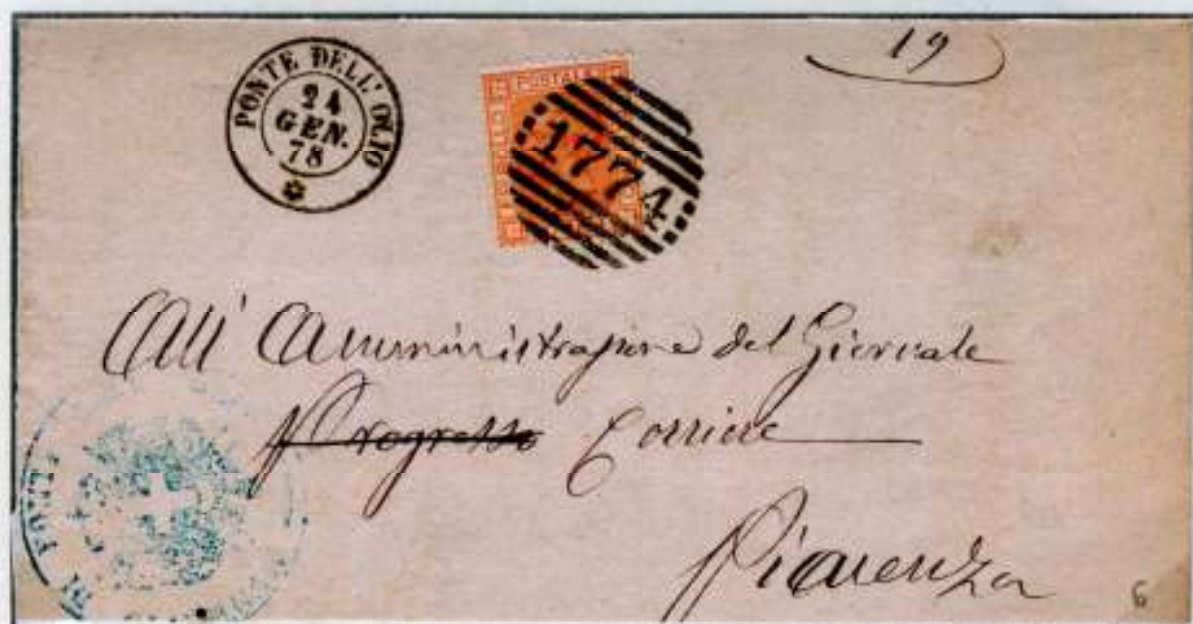 19
PONTE DELL' OLIO
24
GEN.
78
POSTALE
BOLLO
1774
All' Amministrazione del Giornale
Progresso Corriere
Piacenza
6